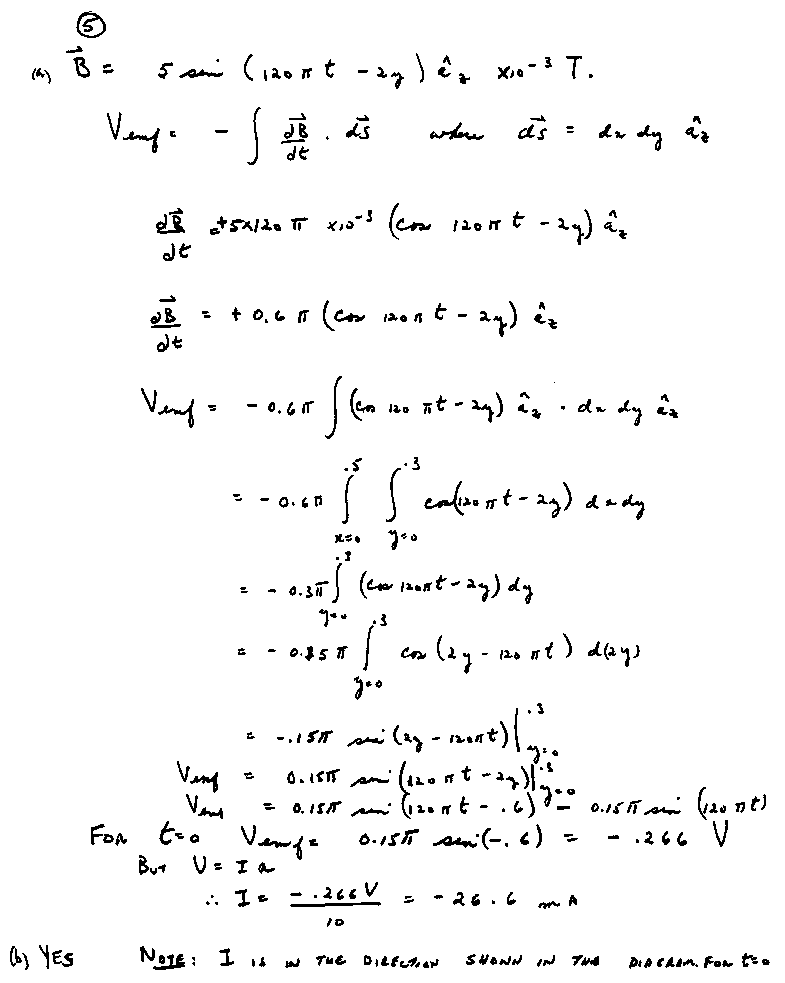 ⑤
(a) B⃗ = 5 sin (120πt - 2y) â_z x10⁻³ T.
Vemf = - ∫ ∂B⃗/∂t · ds⃗ where ds⃗ = dx dy â_z
∂B⃗/∂t = +5x120π x10⁻³ (cos 120πt - 2y) â_z
∂B⃗/∂t = + 0.6π (cos 120πt - 2y) â_z
Vemf = - 0.6π ∫ (cos 120πt - 2y) â_z · dx dy â_z
= - 0.6π ∫_{x=0}^{.5} ∫_{y=0}^{.3} cos(120πt - 2y) dx dy
= - 0.3π ∫_{y=0}^{.3} (cos 120πt - 2y) dy
= - 0.15π ∫_{y=0}^{.3} cos (2y - 120πt) d(2y)
= -.15π sin (2y - 120πt) |_{y=0}^{.3}
Vemf = 0.15π sin (120πt - 2y) |_{y=0}^{.3}
Vemf = 0.15π sin (120πt - .6) - 0.15π sin (120πt)
FOR t=0 Vemf = 0.15π sin(-.6) = - .266 V
BUT V = I R
∴ I = - .266V / 10 = - 26.6 mA
(b) YES NOTE: I IS IN THE DIRECTION SHOWN IN THE DIAGRAM. FOR t=0